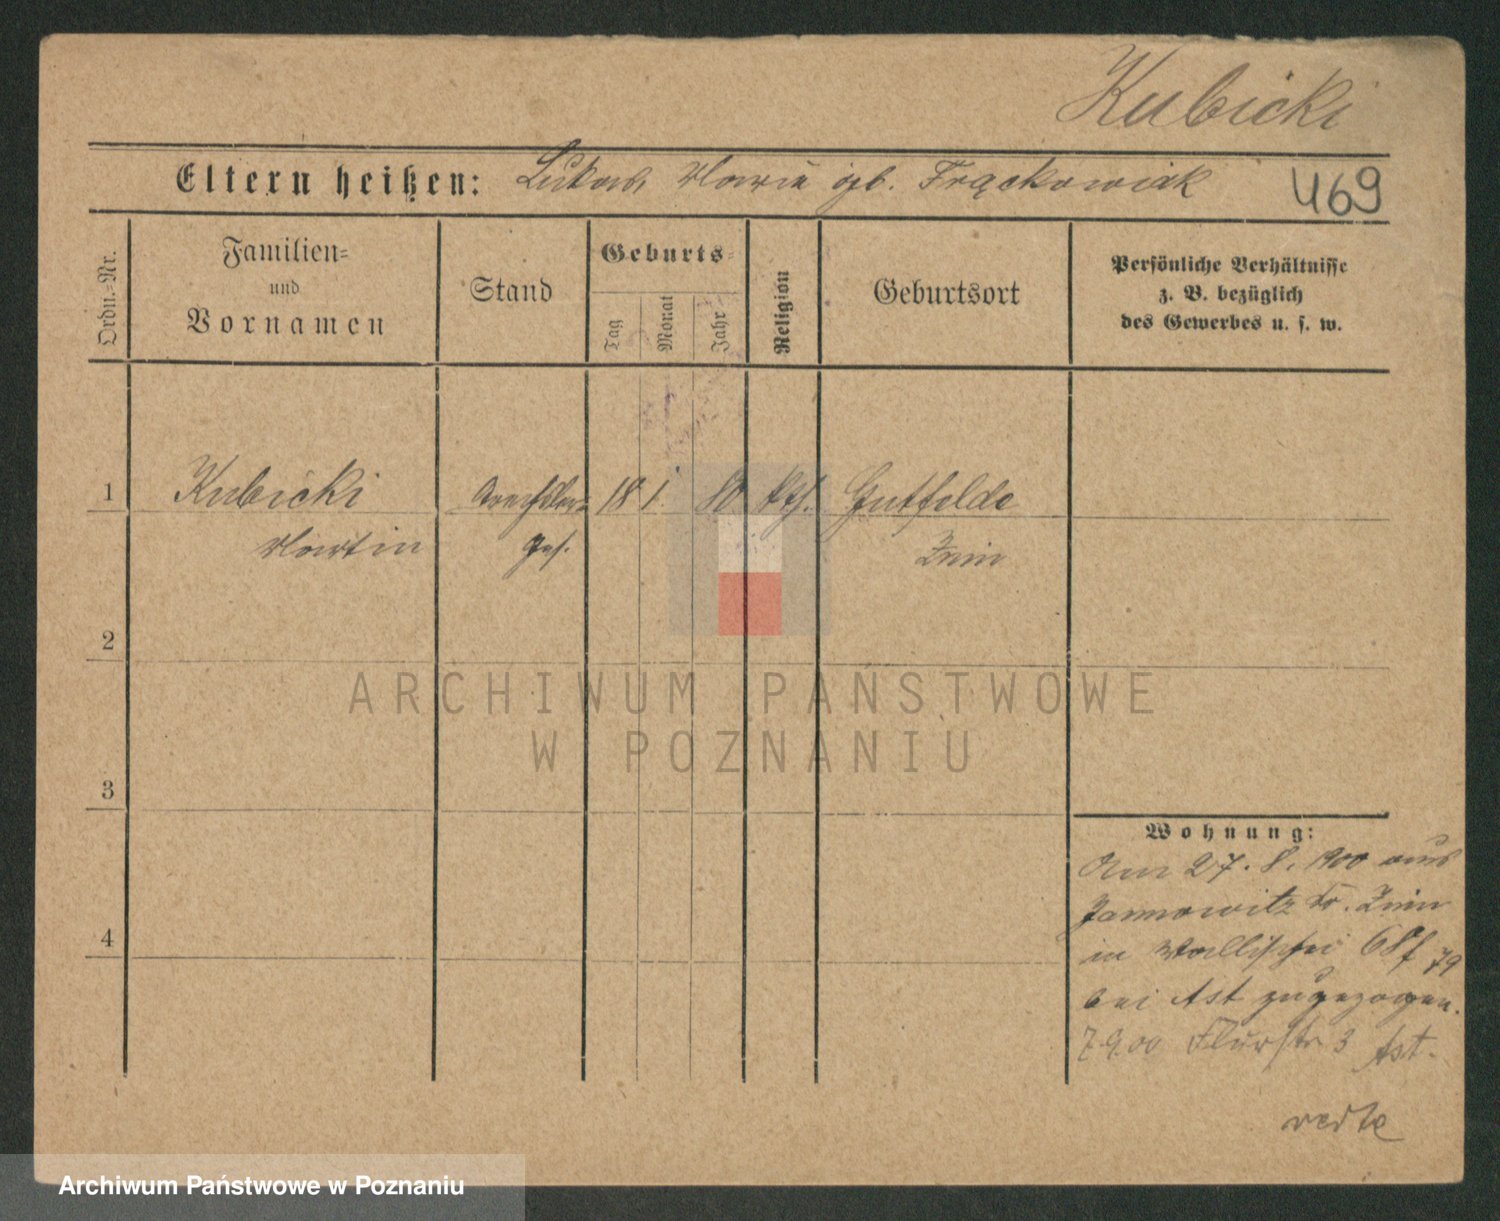 Kubicki
Eltern heißen: Lukas, Maria geb. Frąckowiak
469
Ordn.-Nr.
Familien-
und
Vornamen
Stand
Geburts-
Tag
Monat
Jahr
Religion
Geburtsort
Persönliche Verhältnisse
z. B. bezüglich
des Gewerbes u. s. w.
1 Kubicki 18 1. 80 kth. Gutfelde
Martin Znin
2
ARCHIWUM PAŃSTWOWE
W POZNANIU
3
Wohnung:
Am 27. 8. 1900 aus
Jannowitz Kr. Znin
in Wallischei 68/79
bei Ast zugezogen.
4
7.9.00 Flurstr 3 Ast.
Archiwum Państwowe w Poznaniu